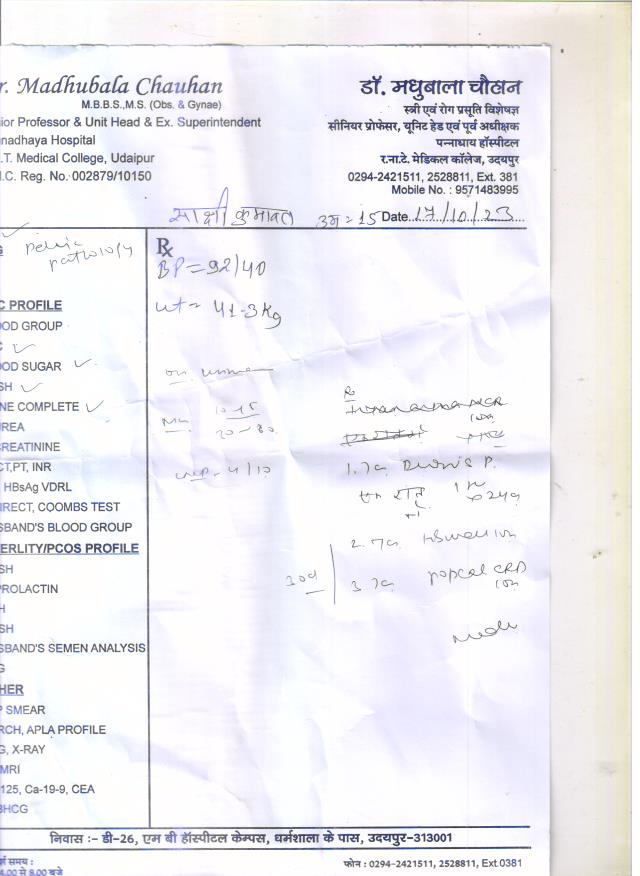 r. Madhubala Chauhan
M.B.B.S.,M.S. (Obs. & Gynae)
ior Professor & Unit Head & Ex. Superintendent
nadhaya Hospital
.T. Medical College, Udaipur
.C. Reg. No. 002879/10150
डॉ. मधुबाला चौहान
स्त्री एवं रोग प्रसूति विशेषज्ञ
सीनियर प्रोफेसर, यूनिट हेड एवं पूर्व अधीक्षक
पन्नाधाय हॉस्पीटल
र.ना.टे. मेडिकल कॉलेज, उदयपुर
0294-2421511, 2528811, Ext. 381
Mobile No. : 9571483995
साक्षी कुमावत उम्र = 15 Date 17/10/23
pelvic
pathology
Rx
BP = 92/40
wt = 41.3 Kg
C PROFILE
OOD GROUP
C
OOD SUGAR
SH
NE COMPLETE
REA
REATININE
CT,PT, INR
HBsAg VDRL
IRECT, COOMBS TEST
SBAND'S BLOOD GROUP
ERLITY/PCOS PROFILE
SH
PROLACTIN
H
SH
SBAND'S SEMEN ANALYSIS
G
HER
SMEAR
RCH, APLA PROFILE
G, X-RAY
MRI
125, Ca-19-9, CEA
BHCG
10-15
20-30
4/10
Rx
1.
P.
2.
3.
निवास :- डी-26, एम बी हॉस्पीटल केम्पस, धर्मशाला के पास, उदयपुर-313001
समय :
4.00 से 8.00 बजे
फोन : 0294-2421511, 2528811, Ext.0381